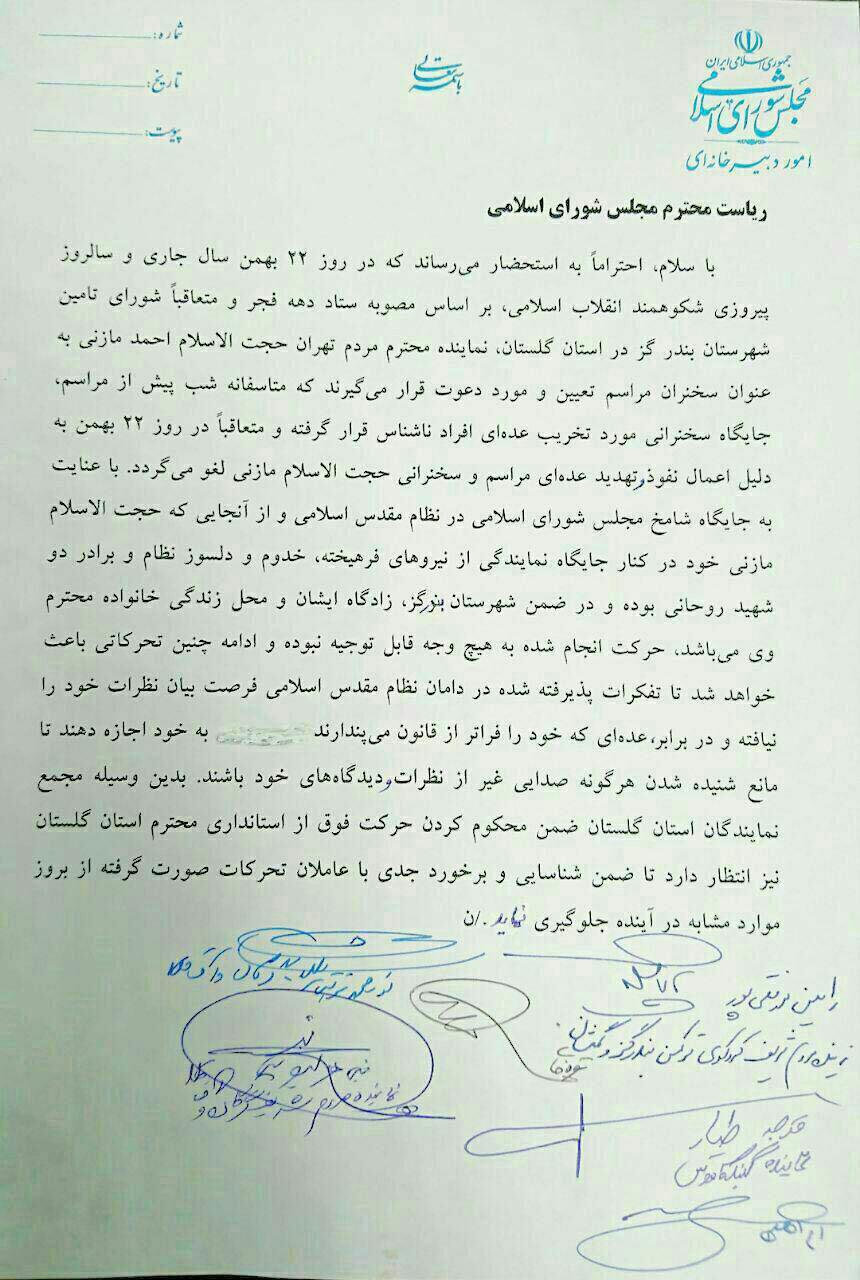 جمهوری اسلامی ایران
مجلس شورای اسلامی
امور دبیرخانه‌ای
باسمه تعالی
شماره:
تاریخ:
پیوست:
ریاست محترم مجلس شورای اسلامی
با سلام، احتراماً به استحضار می‌رساند که در روز ۲۲ بهمن سال جاری و سالروز
پیروزی شکوهمند انقلاب اسلامی، بر اساس مصوبه ستاد دهه فجر و متعاقباً شورای تامین
شهرستان بندر گز در استان گلستان، نماینده محترم مردم تهران حجت الاسلام احمد مازنی به
عنوان سخنران مراسم تعیین و مورد دعوت قرار می‌گیرند که متاسفانه شب پیش از مراسم،
جایگاه سخنرانی مورد تخریب عده‌ای افراد ناشناس قرار گرفته و متعاقباً در روز ۲۲ بهمن به
دلیل اعمال نفوذ و تهدید عده‌ای مراسم و سخنرانی حجت الاسلام مازنی لغو می‌گردد. با عنایت
به جایگاه شامخ مجلس شورای اسلامی در نظام مقدس اسلامی و از آنجایی که حجت الاسلام
مازنی خود در کنار جایگاه نمایندگی از نیروهای فرهیخته، خدوم و دلسوز نظام و برادر دو
شهید روحانی بوده و در ضمن شهرستان بندرگز، زادگاه ایشان و محل زندگی خانواده محترم
وی می‌باشد، حرکت انجام شده به هیچ وجه قابل توجیه نبوده و ادامه چنین تحرکاتی باعث
خواهد شد تا تفکرات پذیرفته شده در دامان نظام مقدس اسلامی فرصت بیان نظرات خود را
نیافته و در برابر،عده‌ای که خود را فراتر از قانون می‌پندارند به خود اجازه دهند تا
مانع شنیده شدن هرگونه صدایی غیر از نظرات و دیدگاه‌های خود باشند. بدین وسیله مجمع
نمایندگان استان گلستان ضمن محکوم کردن حرکت فوق از استانداری محترم استان گلستان
نیز انتظار دارد تا ضمن شناسایی و برخورد جدی با عاملان تحرکات صورت گرفته از بروز
موارد مشابه در آینده جلوگیری نماید ./ن
رامین نورقلی پور
مردم شریف کردکوی ترکمن بندرگز و گمیشان
نماینده مردم
نماینده گنبدکاووس